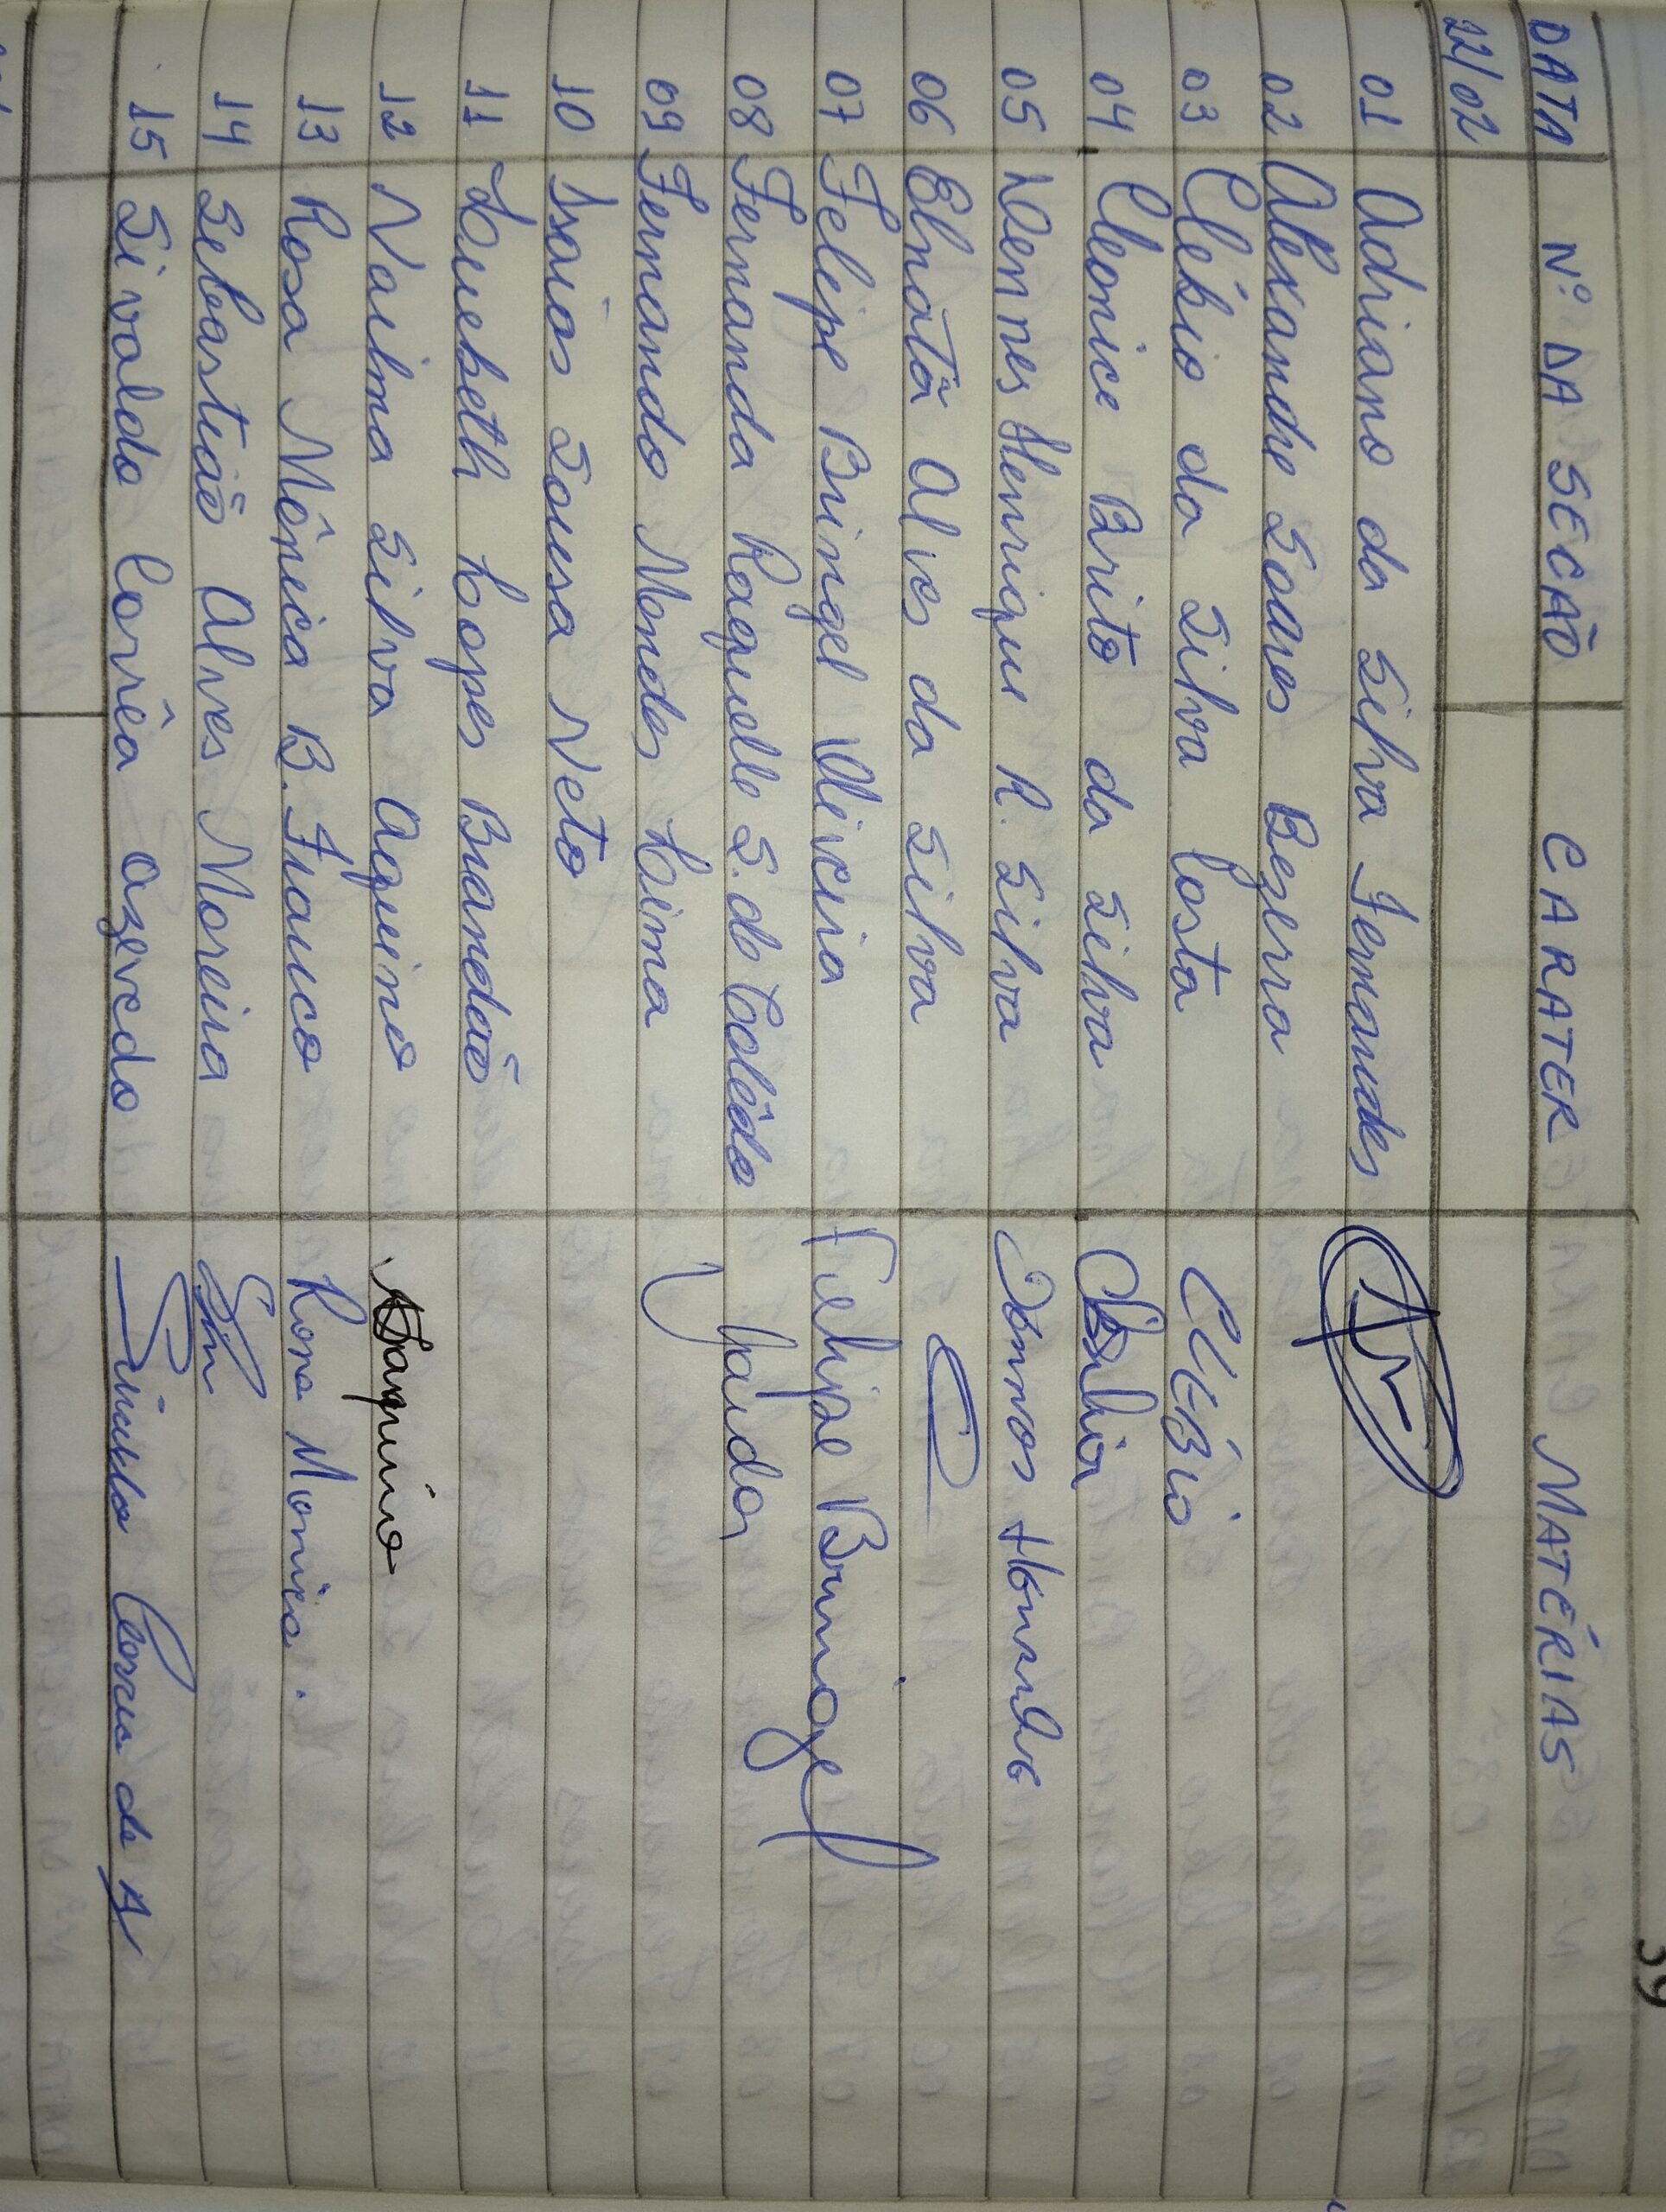 39
DATA Nº DA SECÃO CARATER MATÉRIAS
22/02
01 Adriano da Silva Fernandes
02 Alexandre Soares Bezerra
03 Clébio da Silva Costa CLÉBIO
04 Cleonice Brito da Silva
05 Dennes Henrique R. Silva
06 Elnatã Alves da Silva
07 Felipe Bringel Vieira Felipe Bringel
08 Fernanda Raquelle S. do Colêdo
09 Fernando Mendes Laima
10 Isaias Sousa Neto
11 Lauebeth Lopes Brandão
12 Nailma Silva Aquino Naquino
13 Rosa Mônica B. Franco Rosa Monica.
14 Sebastião Alves Moreira
15 Sivaldo Corrêa Azevedo Sivaldo Correa de A